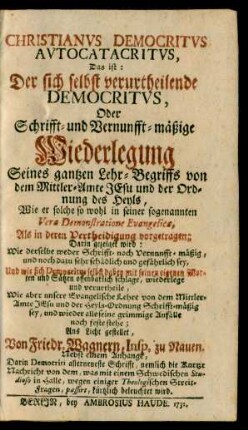 CHRISTIANVS DEMOCRITVS
AVTOCATACRITVS,
Das ist:
Der sich selbst verurtheilende
DEMOCRITVS,
Oder
Schrifft- und Vernunfft-mäßige
Wiederlegung
Seines gantzen Lehr-Begriffs von
dem Mittler-Amte JEsu und der Ord-
nung des Heyls,
Wie er solche so wohl in seiner sogenannten
Vera Demonstratione Evangelica,
Als in deren Vertheidigung vorgetragen;
Darin gezeiget wird:
Wie derselbe weder Schrifft- noch Vernunfft-mäßig,
und noch dazu sehr schädlich und gefährlich sey.
Und wie sich Democritus selbst dabey mit seinen eigenen Wor-
ten und Sätzen offenbarlich schlage, wiederlege
und verurtheile,
Wie aber unsere Evangelische Lehre von dem Mittler-
Amte JEsu und der Heyls-Ordnung Schrifft-mäßig
sey, und wieder alle seine grimmige Anfälle
noch feste stehe;
Ans Licht gestellet,
Von Friedr. Wagnern, Insp. zu Nauen.
Nebst einem Anhange,
Darin Democriti allerneueste Schrifft, nemlich die Kurtze
Nachricht von dem, was mit einem Schwedischen Stu-
dioso in Halle, wegen einiger Theologischen Streit-
Fragen, passiret, kürtzlich beleuchtet wird.
BERLIN, bey AMBROSIUS HAUDE. 1732.